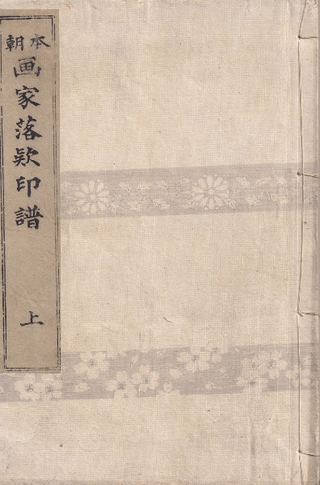 本朝
画家落款印譜
上